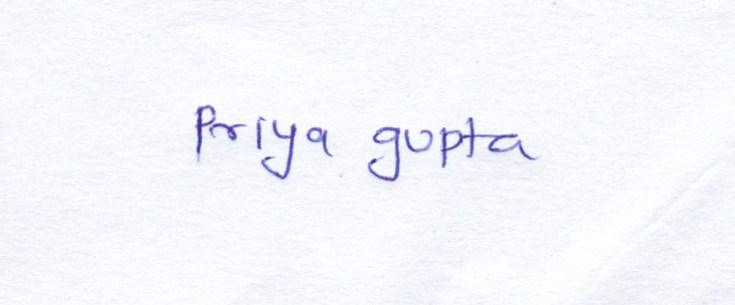 Priya gupta